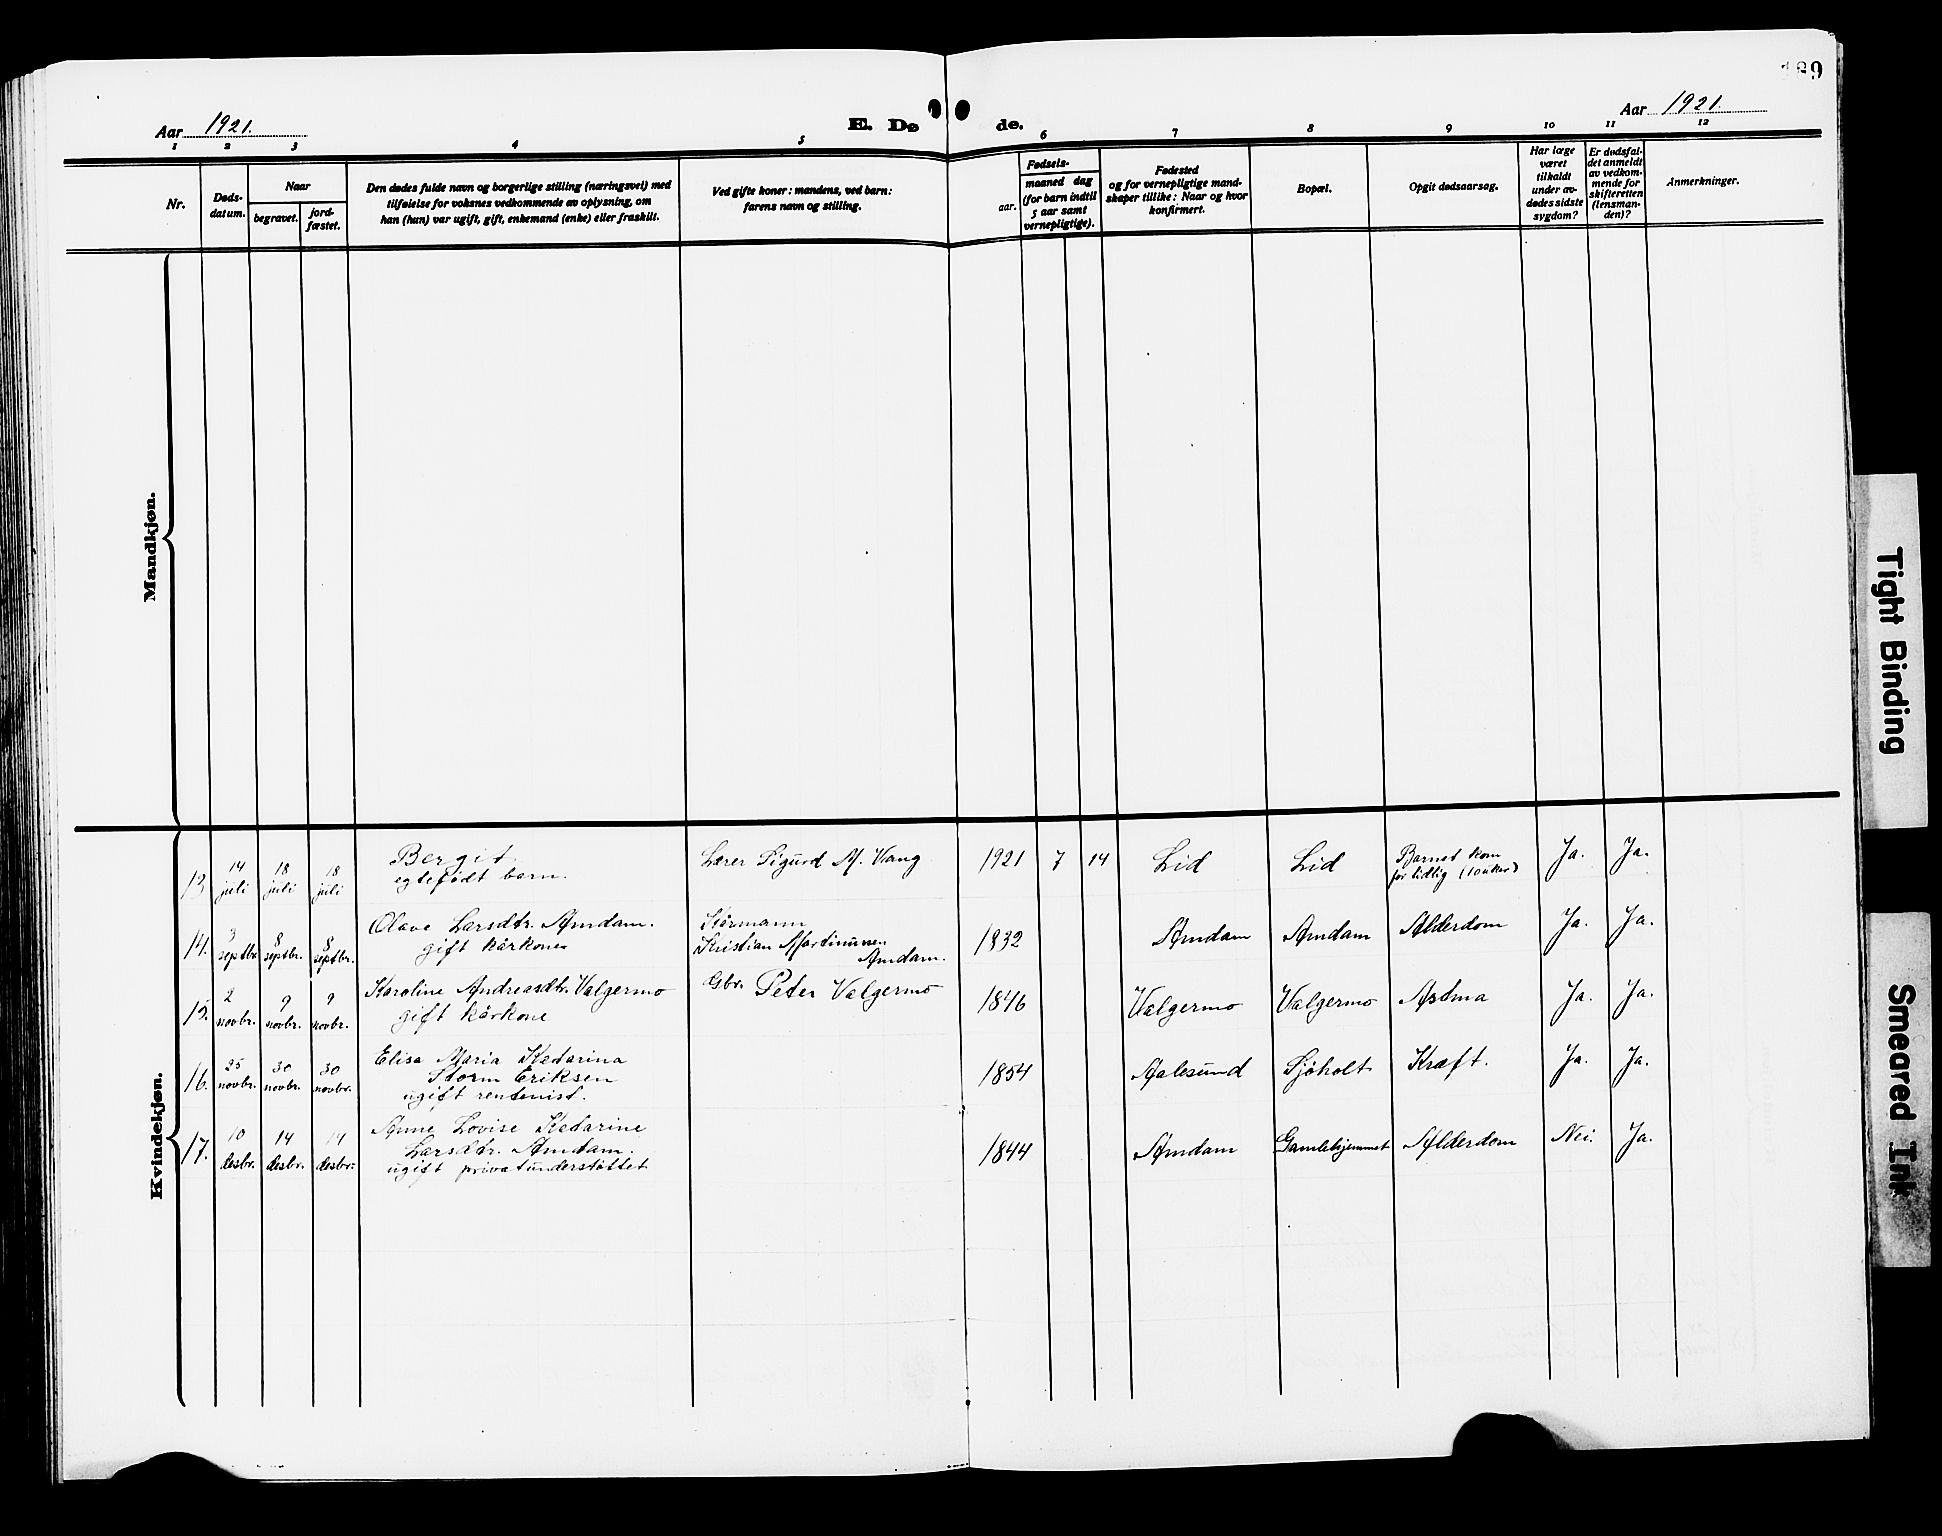 189
Aar 1921.
E. Dø
de.
Aar 1921.
1 2 3 4 5 6 7 8 9 10 11 12
Nr.
Døds-
datum.
Naar
begravet.
jord-
fæstet.
Den dødes fulde navn og borgerlige stilling (næringsvei) med
tilføielse for voksnes vedkommende av oplysning, om
han (hun) var ugift, gift, enkemand (enke) eller fraskilt.
Ved gifte koner: mandens, ved barn:
farens navn og stilling.
Fødsels-
aar.
maaned dag
(for barn indtil
5 aar samt
vernepligtige).
Fødested
og for vernepligtige mand-
skaper tillike: Naar og hvor
konfirmert.
Bopæl.
Opgit dødsaarsag.
Har læge
været
tilkaldt
under av-
dødes sidste
sygdom?
Er dødsfal-
det anmeldt
av vedkom-
mende for
skifteretten
(lensman-
den)?
Anmerkninger.
Mandkjøn.
Kvindekjøn.
13 14 juli 18 juli 18 juli
Bergit
egtefødt barn.
Lærer Sigurd M. Vang
1921 7 14 Lid Lid
Barnet kom
for tidlig (10 uker)
Ja. Ja.
14. 3 septbr. 8 septbr. 8 septbr.
Olave Larsdtr. Amdam.
gift kårkone
Kårmann
Kristian Martinussen
Amdam.
1832 Amdam Amdam Alderdom Ja. Ja.
15. 2 novbr. 9 novbr. 9 novbr.
Karoline Andreasdtr. Valgermo
gift kårkone
Gbr. Peter Valgermo
1846 Valgermo Valgermo Astma Ja. Ja.
16. 25 novbr. 30 novbr. 30 novbr.
Elisa Maria Katarina
Storm Eriksen
ugift rentenist.
1854 Aalesund Sjøholt Kræft. Ja. Ja.
17. 10 desbr. 14 desbr. 14 desbr.
Anne Lovise Katarine
Larsdtr. Amdam.
ugift privatunderstøttet
1844 Amdam Gamlehjemmet Alderdom Nei. Ja.
Tight Binding
Smeared Ink